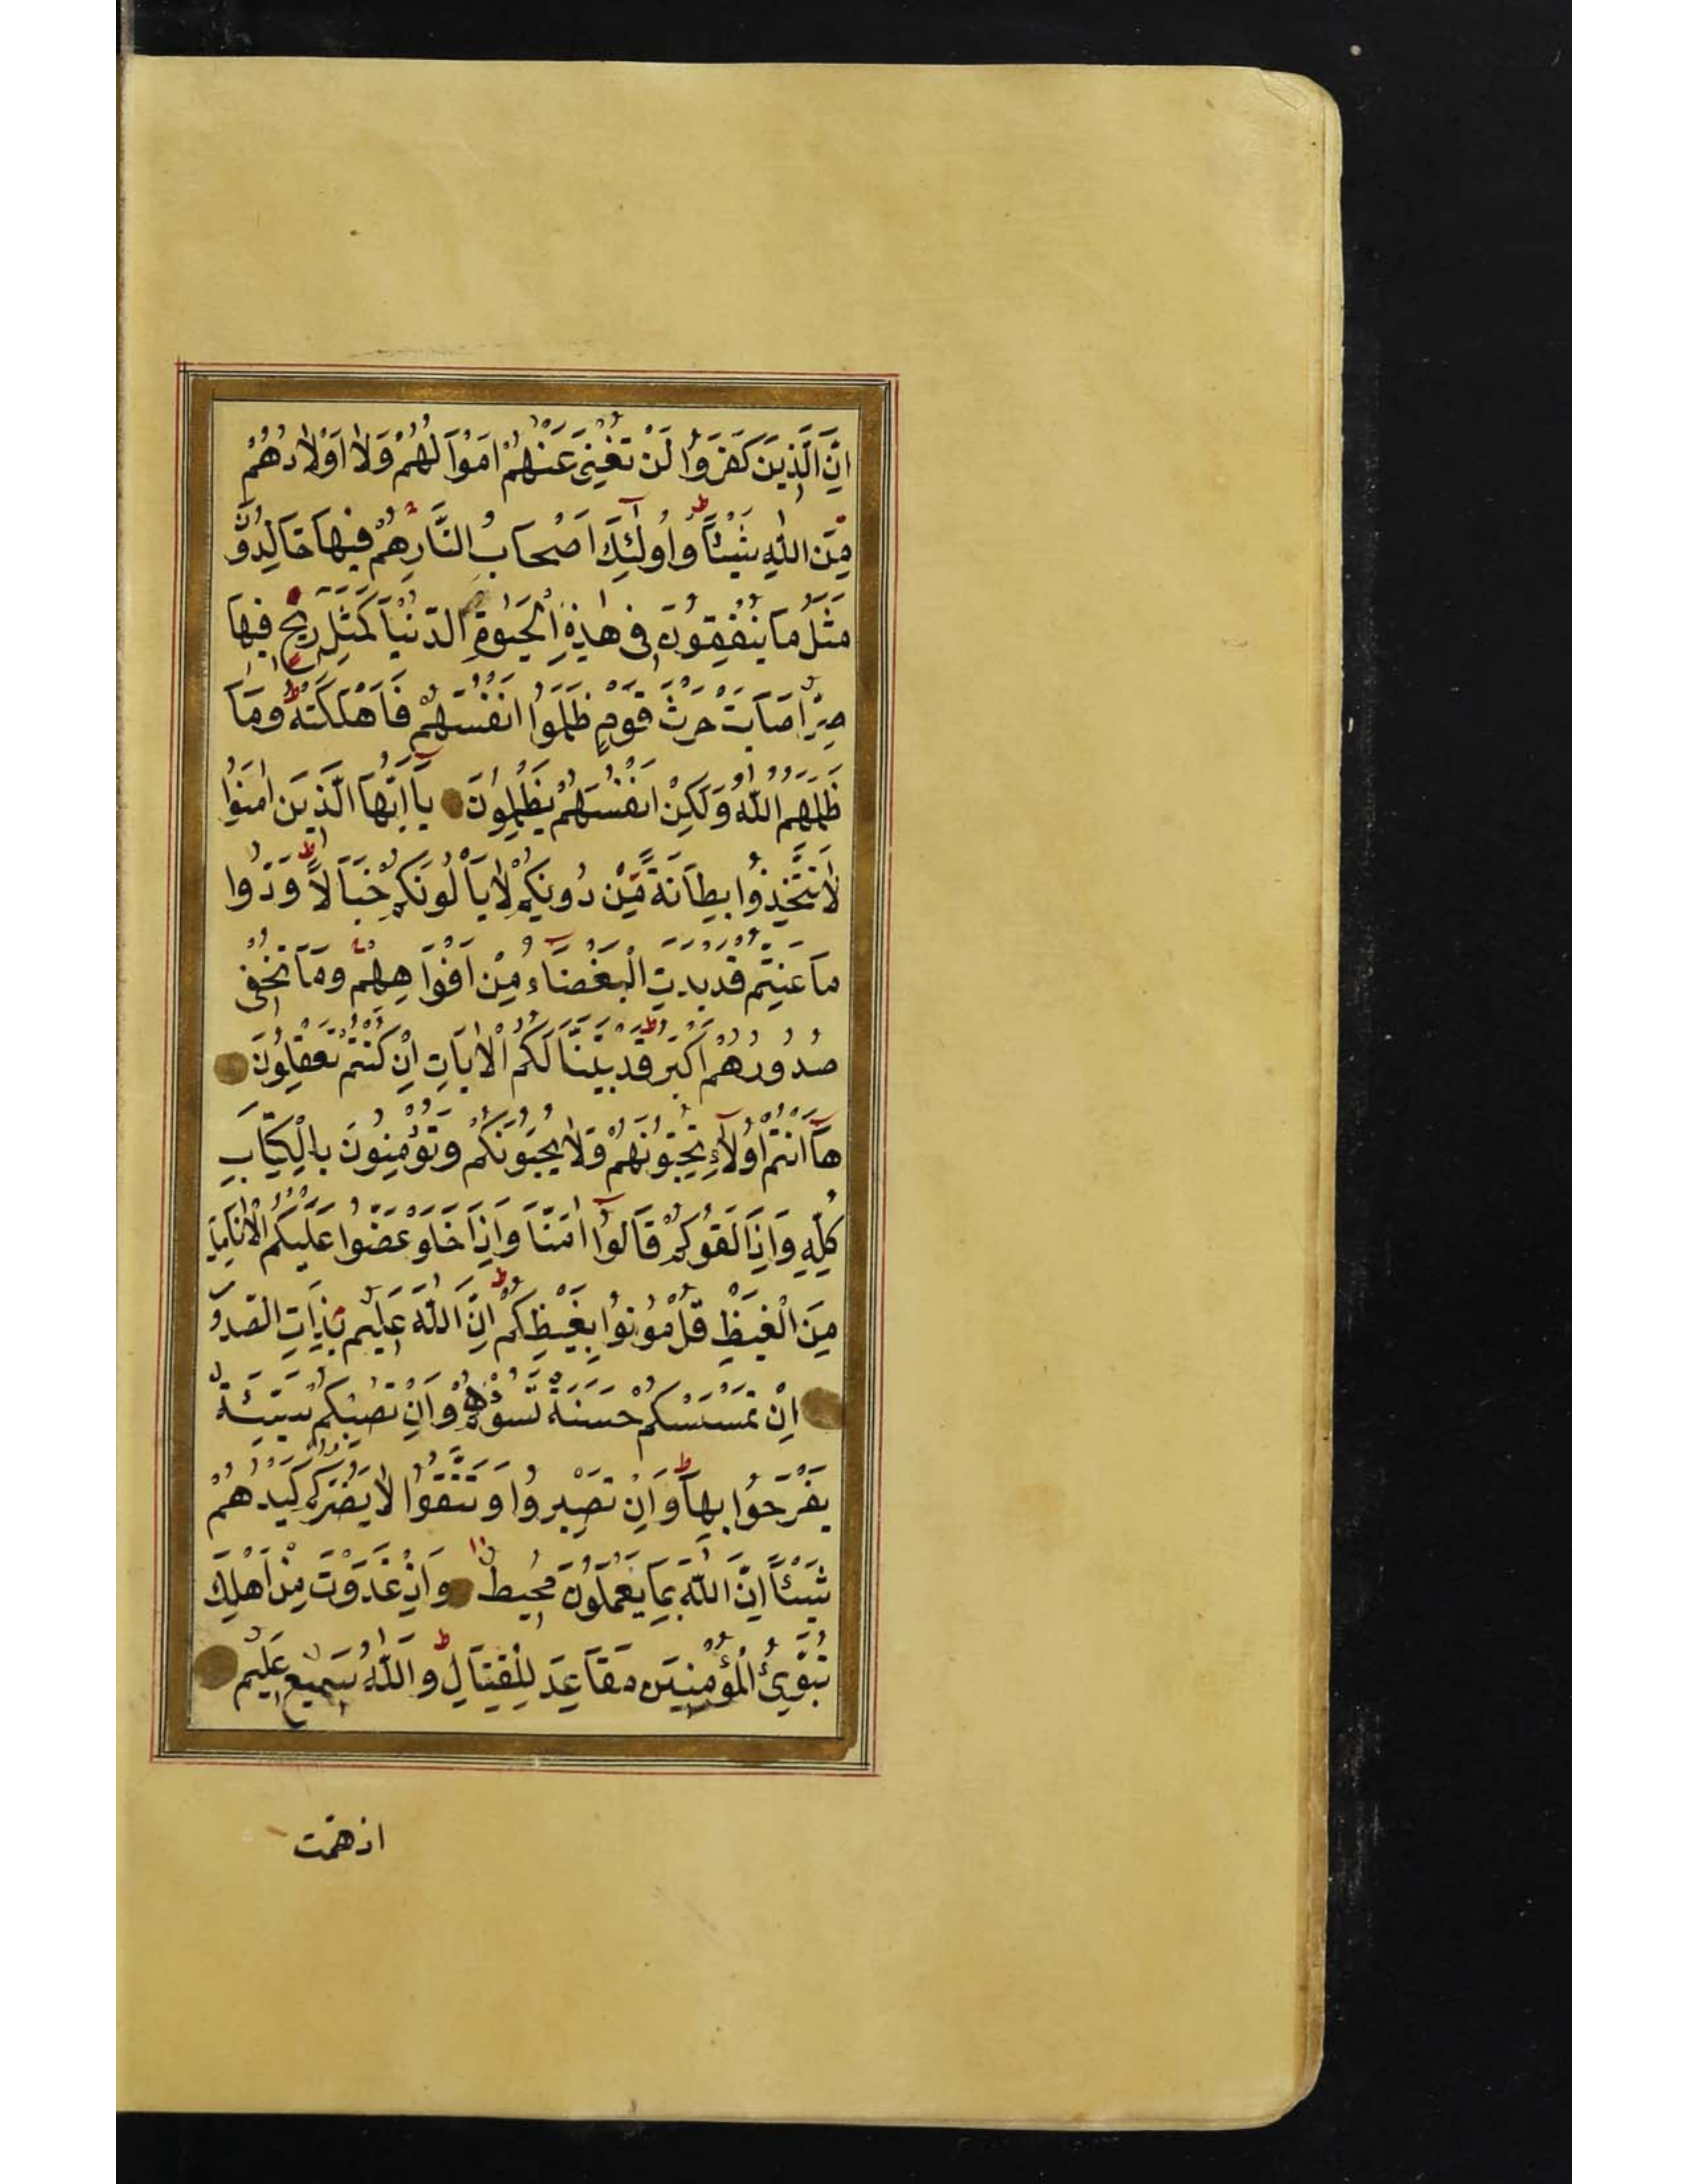 اِنَّ الَّذِينَ كَفَرُوا لَنْ تُغْنِيَ عَنْهُمْ اَمْوَالُهُمْ وَلَا اَوْلَادُهُمْ
مِنَ اللّٰهِ شَيْئًا ط وَاُولٰٓئِكَ اَصْحَابُ النَّارِ هُمْ فِيهَا خَالِدُونَ
مَثَلُ مَا يُنْفِقُونَ فِي هٰذِهِ الْحَيٰوةِ الدُّنْيَا كَمَثَلِ رِيحٍ فِيهَا
صِرٌّ اَصَابَتْ حَرْثَ قَوْمٍ ظَلَمُوا اَنْفُسَهُمْ فَاَهْلَكَتْهُ ط وَمَا
ظَلَمَهُمُ اللّٰهُ وَلٰكِنْ اَنْفُسَهُمْ يَظْلِمُونَ يَٓا اَيُّهَا الَّذِينَ اٰمَنُوا
لَا تَتَّخِذُوا بِطَانَةً مِنْ دُونِكُمْ لَا يَأْلُونَكُمْ خَبَالًا ط وَدُّوا
مَا عَنِتُّمْ قَدْ بَدَتِ الْبَغْضَٓاءُ مِنْ اَفْوَاهِهِمْ وَمَا تُخْفِي
صُدُورُهُمْ اَكْبَرُ ط قَدْ بَيَّنَّا لَكُمُ الْاٰيَاتِ اِنْ كُنْتُمْ تَعْقِلُونَ
هَٓا اَنْتُمْ اُولَٓاءِ تُحِبُّونَهُمْ وَلَا يُحِبُّونَكُمْ وَتُؤْمِنُونَ بِالْكِتَابِ
كُلِّهِ وَاِذَا لَقُوكُمْ قَالُٓوا اٰمَنَّا وَاِذَا خَلَوْا عَضُّوا عَلَيْكُمُ الْاَنَامِلَ
مِنَ الْغَيْظِ قُلْ مُوتُوا بِغَيْظِكُمْ ط اِنَّ اللّٰهَ عَلِيمٌ بِذَاتِ الصُّدُورِ
اِنْ تَمْسَسْكُمْ حَسَنَةٌ تَسُؤْهُمْ وَاِنْ تُصِبْكُمْ سَيِّئَةٌ
يَفْرَحُوا بِهَا ط وَاِنْ تَصْبِرُوا وَتَتَّقُوا لَا يَضُرُّكُمْ كَيْدُهُمْ
شَيْئًا اِنَّ اللّٰهَ بِمَا يَعْمَلُونَ مُحِيطٌ وَاِذْ غَدَوْتَ مِنْ اَهْلِكَ
تُبَوِّئُ الْمُؤْمِنِينَ مَقَاعِدَ لِلْقِتَالِ ط وَاللّٰهُ سَمِيعٌ عَلِيمٌ
اذ همت